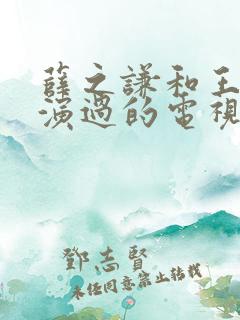 薛之謙和王
演過的電視
鄧志賢
未任同意禁止转载